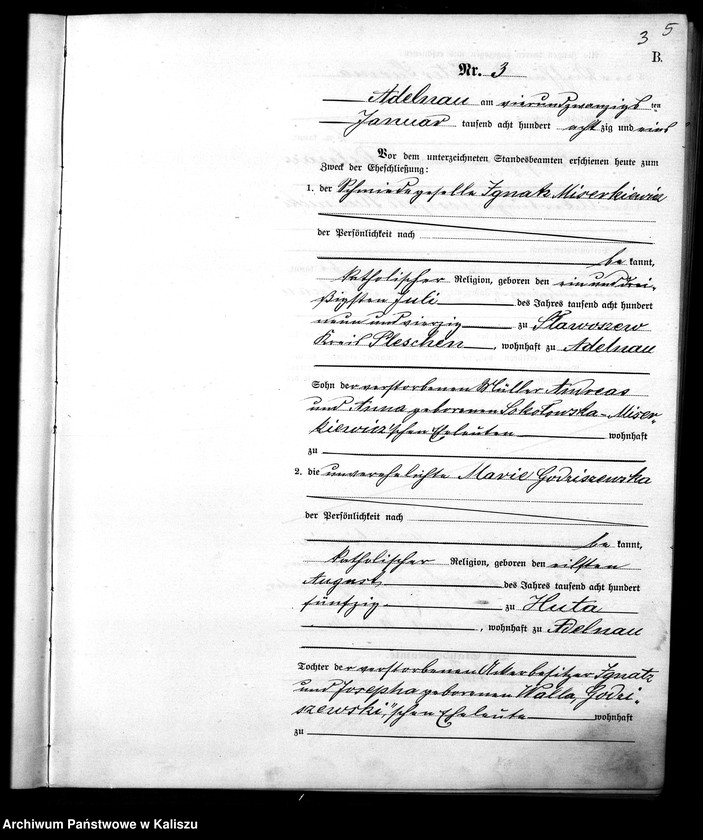 3 5
B.
Nr. 3
Adelnau am vierundzwanzigsten
Januar tausend acht hundert achtzig und eins
Vor dem unterzeichneten Standesbeamten erschienen heute zum
Zweck der Eheschließung:
1. der Schmiedegeselle Ignatz Miserkiewicz
der Persönlichkeit nach
be kannt,
katholischer Religion, geboren den einunddrei-
ßigsten Juli des Jahres tausend acht hundert
neun und vierzig zu Sławoszew
Kreis Pleschen, wohnhaft zu Adelnau
Sohn der verstorbenen Müller Andreas
und Anna geborenen Sokołowska-Miser-
kiewicz'schen Eheleuten wohnhaft
zu
2. die unverehelichte Marie Godziszewska
der Persönlichkeit nach
be kannt,
katholischer Religion, geboren den eilften
August des Jahres tausend acht hundert
fünfzig zu Huta
, wohnhaft zu Adelnau
Tochter der verstorbenen Ackerbesitzer Ignatz
und Josepha geborenen Walla, Godzi-
szewski'schen Eheleute wohnhaft
zu
Archiwum Państwowe w Kaliszu